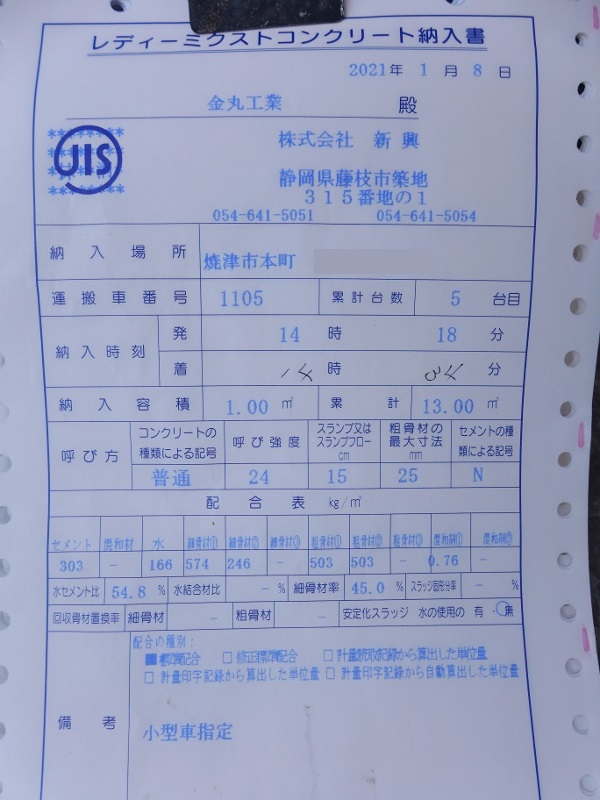 レディーミクストコンクリート納入書
2021年 1月 8日
金丸工業 殿
JIS
株式会社 新興
静岡県藤枝市築地
315番地の1
054-641-5051 054-641-5054
納入場所 焼津市本町
運搬車番号 1105 累計台数 5 台目
納入時刻 発 14 時 18 分
着 14 時 34 分
納入容積 1.00 ㎥ 累計 13.00 ㎥
呼び方 コンクリートの種類による記号 呼び強度 スランプ又はスランプフロー cm 粗骨材の最大寸法 mm セメントの種類による記号
普通 24 15 25 N
配合表 kg/㎥
セメント 混和材 水 細骨材① 細骨材② 細骨材③ 粗骨材① 粗骨材② 粗骨材③ 混和剤① 混和剤②
303 - 166 574 246 - 503 503 - 0.76 -
水セメント比 54.8 % 水結合材比 - % 細骨材率 45.0 % スラッジ固形分率 - %
回収骨材置換率 細骨材 - 粗骨材 - 安定化スラッジ水の使用の有・無
備考
配合の種別:
■標準配合 □修正標準配合 □計量読取記録から算出した単位量
□計量印字記録から算出した単位量 □計量印字記録から自動算出した単位量
小型車指定